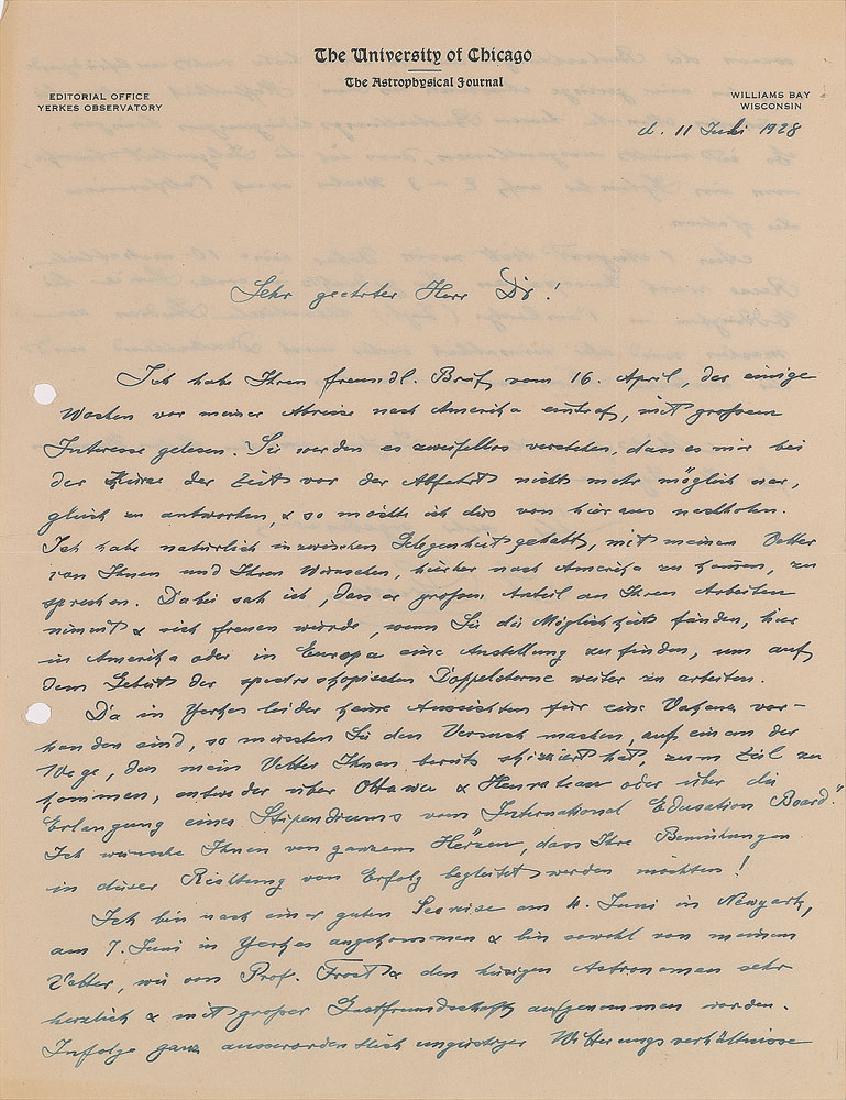 The University of Chicago
The Astrophysical Journal
EDITORIAL OFFICE
YERKES OBSERVATORY
WILLIAMS BAY
WISCONSIN
d. 11 Juli 1928
Sehr geehrter Herr Dr!
Ich habe Ihren freundl. Brief vom 16. April, der einige
Wochen vor meiner Abreise nach Amerika eintraf, mit grossem
Interesse gelesen. Sie werden es zweifellos verstehen, dass es mir bei
der Kürze der Zeit vor der Abfahrt nicht mehr möglich war,
gleich zu antworten, & so möchte ich dies von hier aus nachholen.
Ich habe natürlich inzwischen Gelegenheit gehabt, mit meinem Vetter
von Ihnen und Ihren Wünschen, hierher nach Amerika zu kommen, zu
sprechen. Dabei sah ich, dass er grossen Anteil an Ihren Arbeiten
nimmt & sich freuen würde, wenn Sie die Möglichkeit fänden, hier
in Amerika oder in Europa eine Anstellung zu finden, um auf
dem Gebiet der spectroskopischen Doppelsterne weiter zu arbeiten.
Da in Yerkes leider keine Aussichten für eine Vakanz vor-
handen sind, so müssten Sie den Versuch machen, auf einem der
Wege, den mein Vetter Ihnen bereits skizziert hat, zum Ziel zu
kommen, entweder über Ottawa & oder über die
Erlangung eines Stipendiums vom International Education Board."
Ich wünsche Ihnen von ganzem Herzen, dass Ihre Bemühungen
in dieser Richtung von Erfolg begleitet werden möchten!
Ich bin nach einer guten Seereise am 4. Juni in Newyork,
am 7. Juni in Yerkes angekommen & bin sowohl von meinem
Vetter, wie von Prof. Frost & den hiesigen Astronomen sehr
herzlich & mit grosser Gastfreundschaft aufgenommen worden.
Infolge ganz ausserordentlich ungünstiger Witterungsverhältnisse